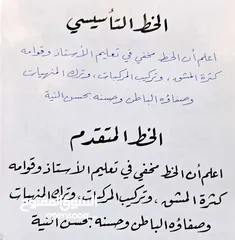 الخط التأسيسي
اعلم أن الخط مخفي في تعليم الأستاذ وقوامه
كثرة المشق، وتركيب المركبات، وترك المنهيات
وصفاؤه الباطن وحسنه بحسن النية
الخط المتقدم
اعلم أن الخط مخفي في تعليم الأستاذ وقوامه
كثرة المشق، وتركيب المركبات، وترك المنهيات
وصفاؤه الباطن وحسنه بحسن النية
السوق المفتوح